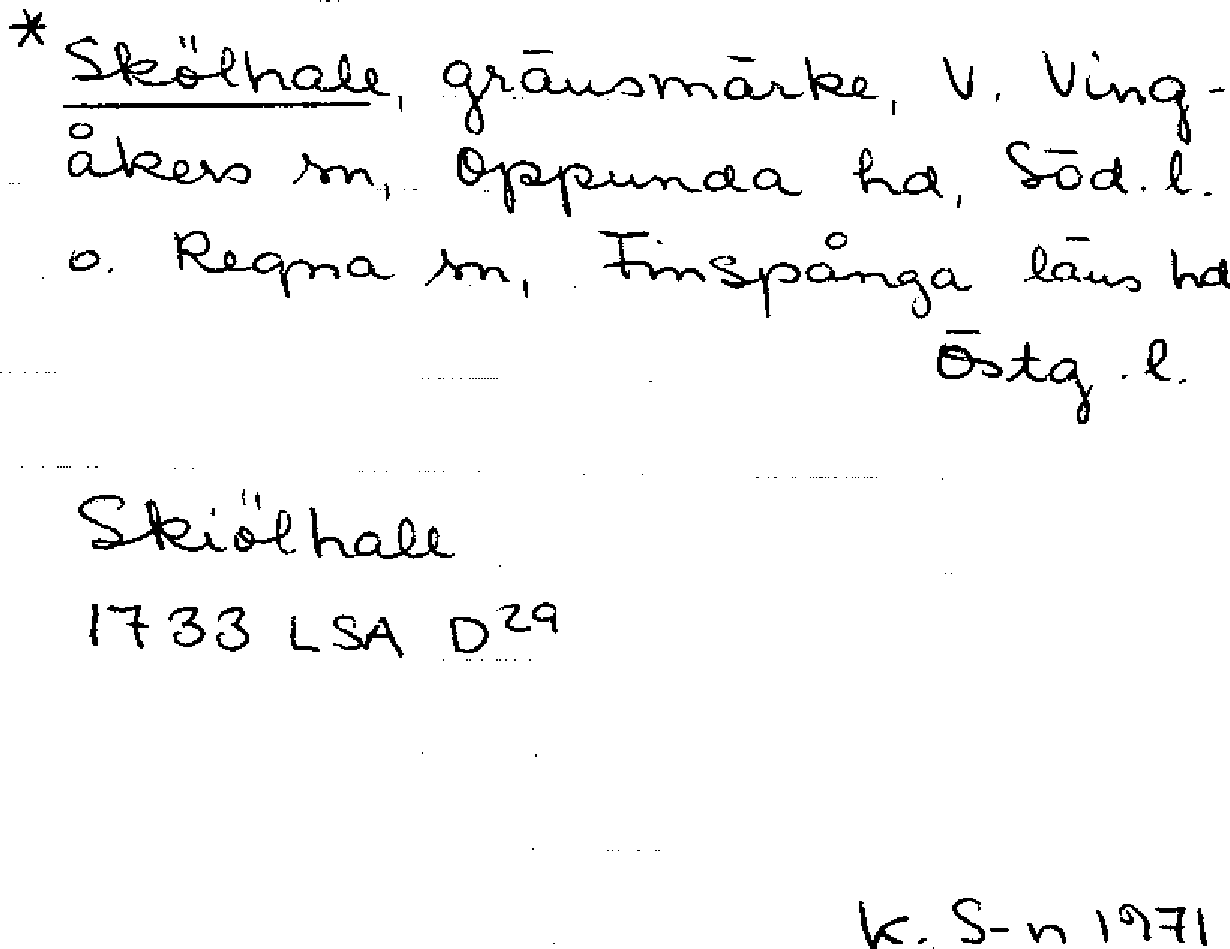 * Skölhall, gränsmärke, V. Ving-
åkers sn, Oppunda hd, Söd. l.
o. Regna sn, Finspånga läns hd
Östg. l.
Skiölhall
1733 LSA D29
K. S-n 1971